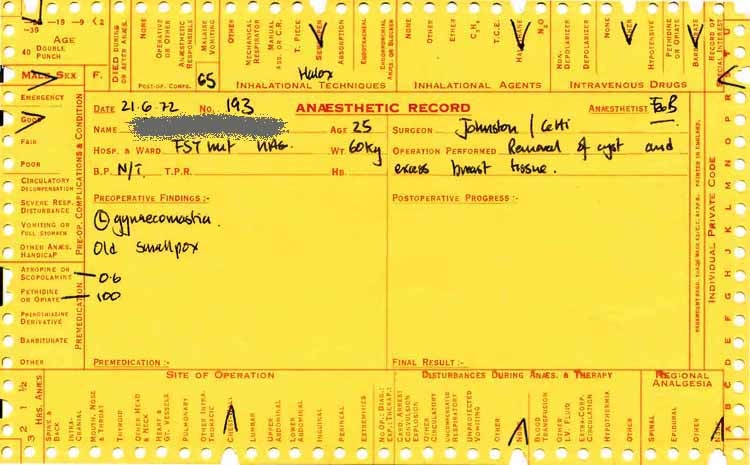 -39 -19 -9 <2
AGE
40 DOUBLE PUNCH
DIED DURING OR AFTER ANÆS.
NONE
OPERATIVE OR OTHER
ANÆSTHETIC RESPONSIBLE
MALAISE VOMITING
OTHER
MECHANICAL RESPIRATOR
MANUAL ASS. OR C.R.
T. PIECE
ABSORPTION
ENDOTRACHEAL
NONE
OTHER
ETHER
T.C.E.
N₂O
NON-DEPOLARIZER
DEPOLARIZER
NONE
OTHER
HYPOTENSIVE
PETHIDINE OR OPIATE
BARBITURATE
RECORD OF SPECIAL INTEREST
MALE SEX F.
POST-OP. COMPS.
65
Halox
INHALATIONAL TECHNIQUES
INHALATIONAL AGENTS
INTRAVENOUS DRUGS
EMERGENCY
GOOD
FAIR
POOR
CIRCULATORY DECOMPENSATION
SEVERE RESP. DISTURBANCE
VOMITING OR FULL STOMACH
OTHER ANÆS. HANDICAP
PRE-OP. COMPLICATIONS & CONDITION
ATROPINE OR SCOPOLAMINE 0.6
PETHIDINE OR OPIATE 100
PHENOTHIAZINE DERIVATIVE
BARBITURATE
OTHER
PREMEDICATION
DATE 21.6.72 No. 193 ANÆSTHETIC RECORD ANÆSTHETIST
NAME AGE 25 SURGEON Johnston / Cetti
HOSP. & WARD WT. 60Kg OPERATION PERFORMED Removal of cyst and
B.P. N/T. T.P.R. HB. excess breast tissue.
PREOPERATIVE FINDINGS :- POSTOPERATIVE PROGRESS :-
Ⓛ gynaecomastia.
Old smallpox
PREMEDICATION :- FINAL RESULT :-
INDIVIDUAL PRIVATE CODE
PRINTED IN ENGLAND.
SITE OF OPERATION
DISTURBANCES DURING ANÆS. & THERAPY
REGIONAL ANALGESIA
HRS. ANÆS.
3 2 1 ½
SPINE & BACK
INTRA-CRANIAL
MOUTH, NOSE & THROAT
THYROID
OTHER HEAD & NECK
HEART & GT. VESSELS
PULMONARY
OTHER INTRA-THORACIC
LUMBAR
UPPER ABDOMINAL
LOWER ABDOMINAL
INGUINAL
PERINEAL
EXTREMITIES
CARD. ARREST CONVULSION EXPLOSION
OTHER CIRCULATORY
UNCOMPENSATED RESPIRATORY
UNPROTECTED VOMITING
OTHER
BLOOD TRANSFUSION
OTHER I.V. FLUID
EXTRA-CORP. CIRCULATION
HYPOTHERMIA
OTHER
SPINAL
EPIDURAL
OTHER